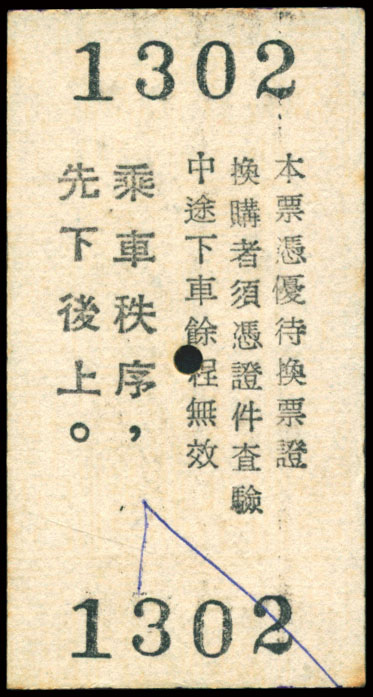 1302
本票憑優待換票證
換購者須憑證件查驗
中途下車餘程無效
乘車秩序，
先下後上。
1302